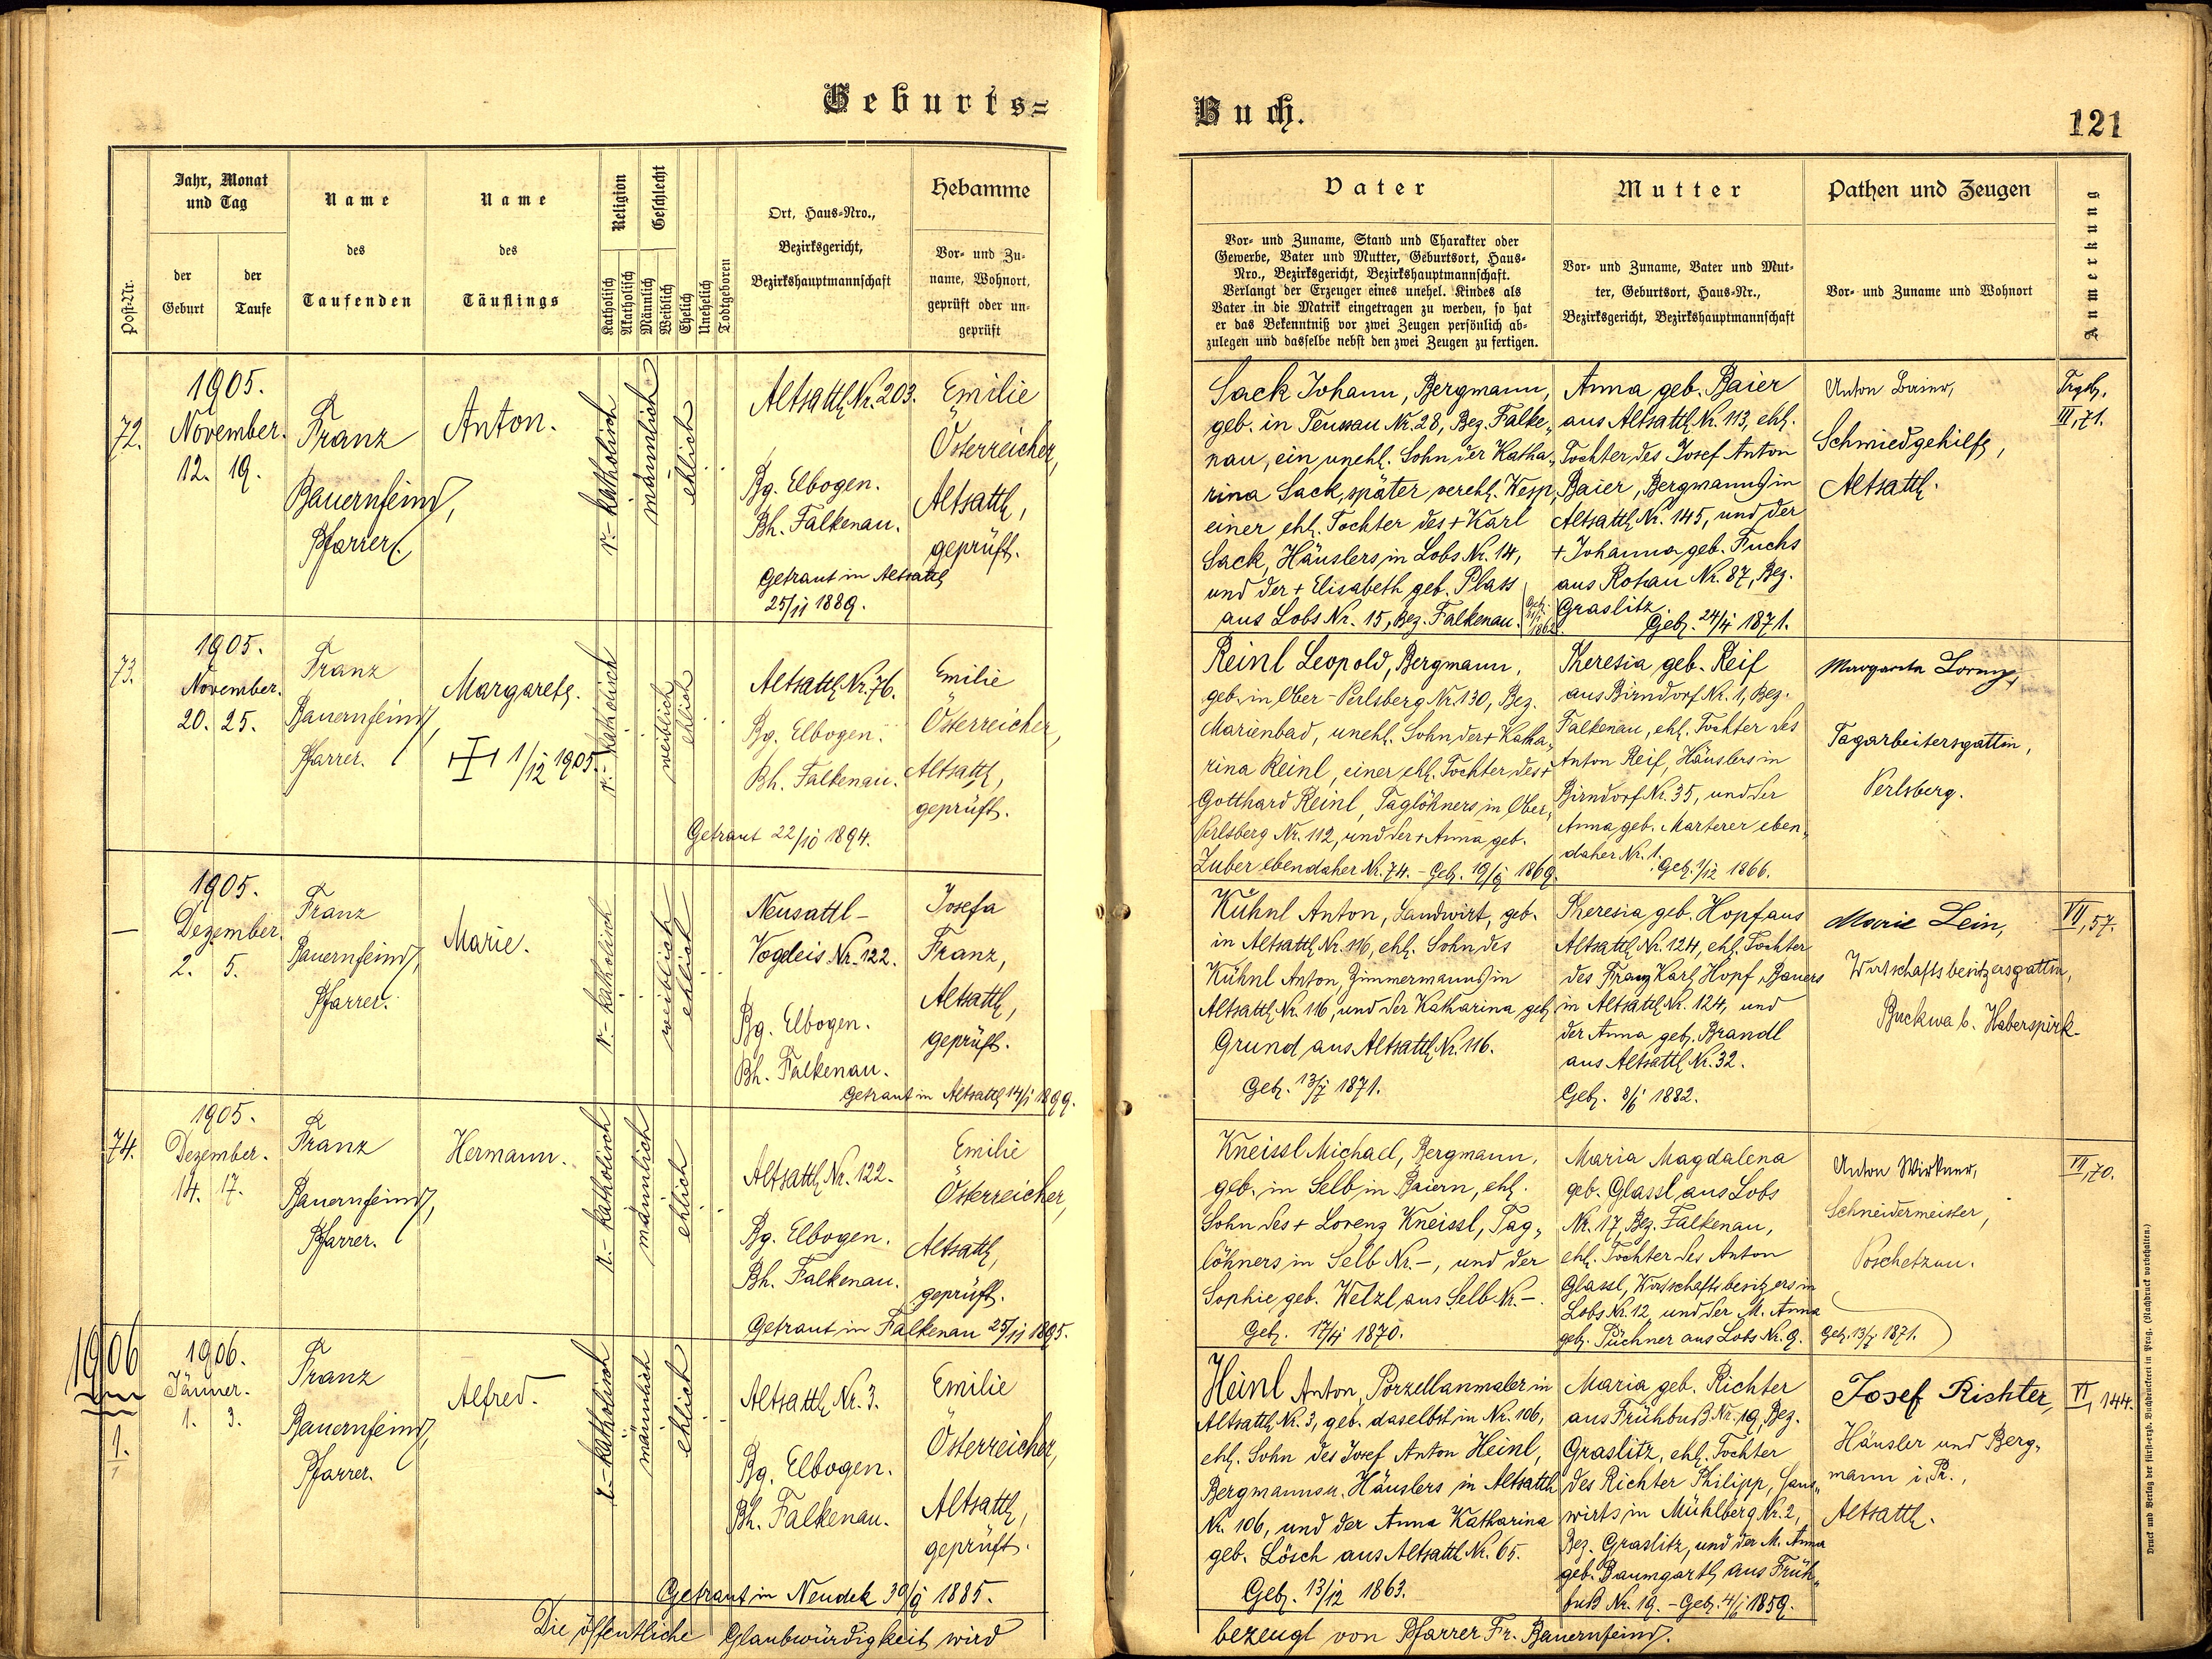 Geburts=
Jahr, Monat
und Tag
Name
des
Taufenden
Name
des
Täuflings
Religion
Geschlecht
Ort, Haus=Nro.,
Bezirksgericht,
Bezirkshauptmannschaft
Hebamme
Vor= und Zu=
name, Wohnort,
geprüft oder un=
geprüft
Post=Nr.
der
Geburt
der
Taufe
Katholisch
Akatholisch
Männlich
Weiblich
Ehelich
Unehelich
Todtgeboren
72.
1905.
November.
12. 19.
Franz
Bauernfeind,
Pfarrer.
Anton.
r.- katholisch
männlich
ehlich
Altsattl Nr. 203.
Bg. Elbogen.
Bh. Falkenau.
Getraut in Altsattl
25/11 1889.
Emilie
Österreicher,
Altsattl,
geprüft.
73.
1905.
November.
20. 25.
Franz
Bauernfeind,
Pfarrer.
Margareth.
1/12 1905.
r.- katholisch
weiblich
ehlich
Altsattl Nr. 76.
Bg. Elbogen.
Bh. Falkenau.
Getraut 22/10 1894.
Emilie
Österreicher,
Altsattl,
geprüft.
—
1905.
Dezember.
2. 5.
Franz
Bauernfeind,
Pfarrer.
Marie.
r.- katholisch
weiblich
ehlich
Neusattl-
Vogleis Nr. 122.
Bg. Elbogen.
Bh. Falkenau.
Getraut in Altsattl 14/1 1899.
Josefa
Franz,
Altsattl,
geprüft.
74.
1905.
Dezember.
14. 17.
Franz
Bauernfeind,
Pfarrer.
Hermann.
r.- katholisch
männlich
ehlich
Altsattl Nr. 122.
Bg. Elbogen.
Bh. Falkenau.
Getraut in Falkenau 25/11 1895.
Emilie
Österreicher,
Altsattl,
geprüft.
1906
1.
1906.
Jänner.
1. 3.
Franz
Bauernfeind,
Pfarrer.
Alfred.
r.- katholisch
männlich
ehlich
Altsattl Nr. 3.
Bg. Elbogen.
Bh. Falkenau.
Getraut in Neudek 1885.
Emilie
Österreicher,
Altsattl,
geprüft.
Die öffentliche Glaubwürdigkeit wird
Buch.
121
Vater
Vor= und Zuname, Stand und Charakter oder
Gewerbe, Vater und Mutter, Geburtsort, Haus=
Nro., Bezirksgericht, Bezirkshauptmannschaft.
Verlangt der Erzeuger eines unehel. Kindes als
Vater in die Matrik eingetragen zu werden, so hat
er das Bekenntniß vor zwei Zeugen persönlich ab=
zulegen und dasselbe nebst den zwei Zeugen zu fertigen.
Mutter
Vor= und Zuname, Vater und Mut=
ter, Geburtsort, Haus=Nr.,
Bezirksgericht, Bezirkshauptmannschaft
Pathen und Zeugen
Vor= und Zuname und Wohnort
Anmerkung
Sack Johann, Bergmann,
geb. in Teussau Nr. 28, Bez. Falke„
nau, ein unehl. Sohn der Katha„
rina Sack, später verehl. Wesp,
einer ehl. Tochter des + Karl
Sack, Häuslers in Lobs Nr. 14,
und der + Elisabeth geb. Plass
aus Lobs Nr. 15, Bez. Falkenau.
Geb.
1862.
Anna geb. Baier
aus Altsattl Nr. 113, ehl.
Tochter des Josef Anton
Baier, Bergmanns in
Altsattl Nr. 145, und der
+ Johanna geb. Fuchs
aus Rotau Nr. 87, Bez.
Graslitz.
Geb. 24/4 1871.
Anton Baier,
Schmiedgehilfe,
Altsattl.
III, 71.
Reinl Leopold, Bergmann,
geb. in Ober-Perlsberg Nr. 130, Bez.
Marienbad, unehl. Sohn der + Katha„
rina Reinl, einer ehl. Tochter des +
Gotthard Reinl, Taglöhners in Ober„
Perlsberg Nr. 112, und der + Anna geb.
Zuber ebendaher Nr. 74. - Geb. 1869.
Theresia geb. Reif
aus Birndorf Nr. 1, Bez.
Falkenau, ehl. Tochter des
Anton Reif, Häuslers in
Birndorf Nr. 35, und der
Anna geb. Marterer eben„
daher Nr. 1.
Geb. 1/12 1866.
Margareta Lorenz,
Tagarbeitersgattin,
Perlsberg.
Kühnl Anton, Landwirt, geb.
in Altsattl Nr. 116, ehl. Sohn des
Kühnl Anton, Zimmermanns in
Altsattl Nr. 116, und der Katharina geb.
Grund aus Altsattl Nr. 116.
Geb. 1871.
Theresia geb. Hopf aus
Altsattl Nr. 124, ehl. Tochter
des Franz Karl Hopf, Bauers
in Altsattl Nr. 124, und
der Anna geb. Brandl
aus Altsattl Nr. 32.
Geb. 8/6 1882.
Marie Lein,
Wirtschaftsbesitzersgattin,
Buckwa b. Haberspirk
VII, 57.
Kneissl Michael, Bergmann,
geb. in Selb in Baiern, ehl.
Sohn des + Lorenz Kneissl, Tag„
löhners in Selb Nr. -, und der
Sophie geb. Wetzl aus Selb Nr. -.
Geb. 1870.
Maria Magdalena
geb. Glassl aus Lobs
Nr. 17, Bez. Falkenau,
ehl. Tochter des Anton
Glassl, Wirtschaftsbesitzers in
Lobs Nr. 12, und der M. Anna
geb. Püchner aus Lobs Nr. 9.
Geb. 13/7 1871.
Anton Wirkner,
Schneidermeister,
Poschetzau.
VII, 70.
Heinl Anton, Porzellanmaler in
Altsattl Nr. 3, geb. daselbst in Nr. 106,
ehl. Sohn des Josef Anton Heinl,
Bergmanns u. Häuslers in Altsattl
Nr. 106, und der Anna Katharina
geb. Lösch aus Altsattl Nr. 65.
Geb. 13/12 1863.
Maria geb. Richter
aus Frühbuß Nr. 19, Bez.
Graslitz, ehl. Tochter
des Richter Philipp, Haus„
wirts in Mühlberg Nr. 2,
Bez. Graslitz, und der M. Anna
geb. Baumgartl aus Früh„
buß Nr. 19. - Geb. 4/1 1859.
Josef Richter,
Häusler und Berg„
mann i. P.,
Altsattl.
VI, 144.
bezeugt von Pfarrer Fr. Bauernfeind.
Druck und Verlag der fürsterzb. Buchdruckerei in Prag. (Nachdruck vorbehalten.)